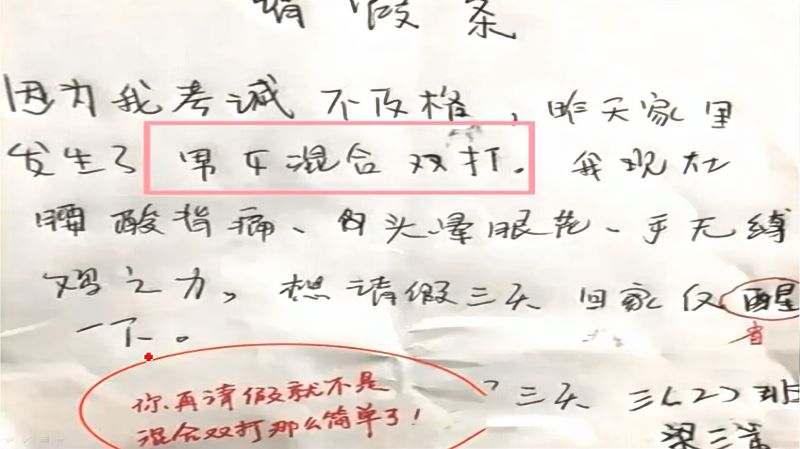 请假条
因为我考诚不及格,昨天家里
发生了男女混合双打。我现在
腰酸背痛、白头晕眼花、手无缚
鸡之力,想请假三天回家仅醒
省
一下。
你再请假就不是
混合双打那么简单了!
三天 三(2)班
梁三